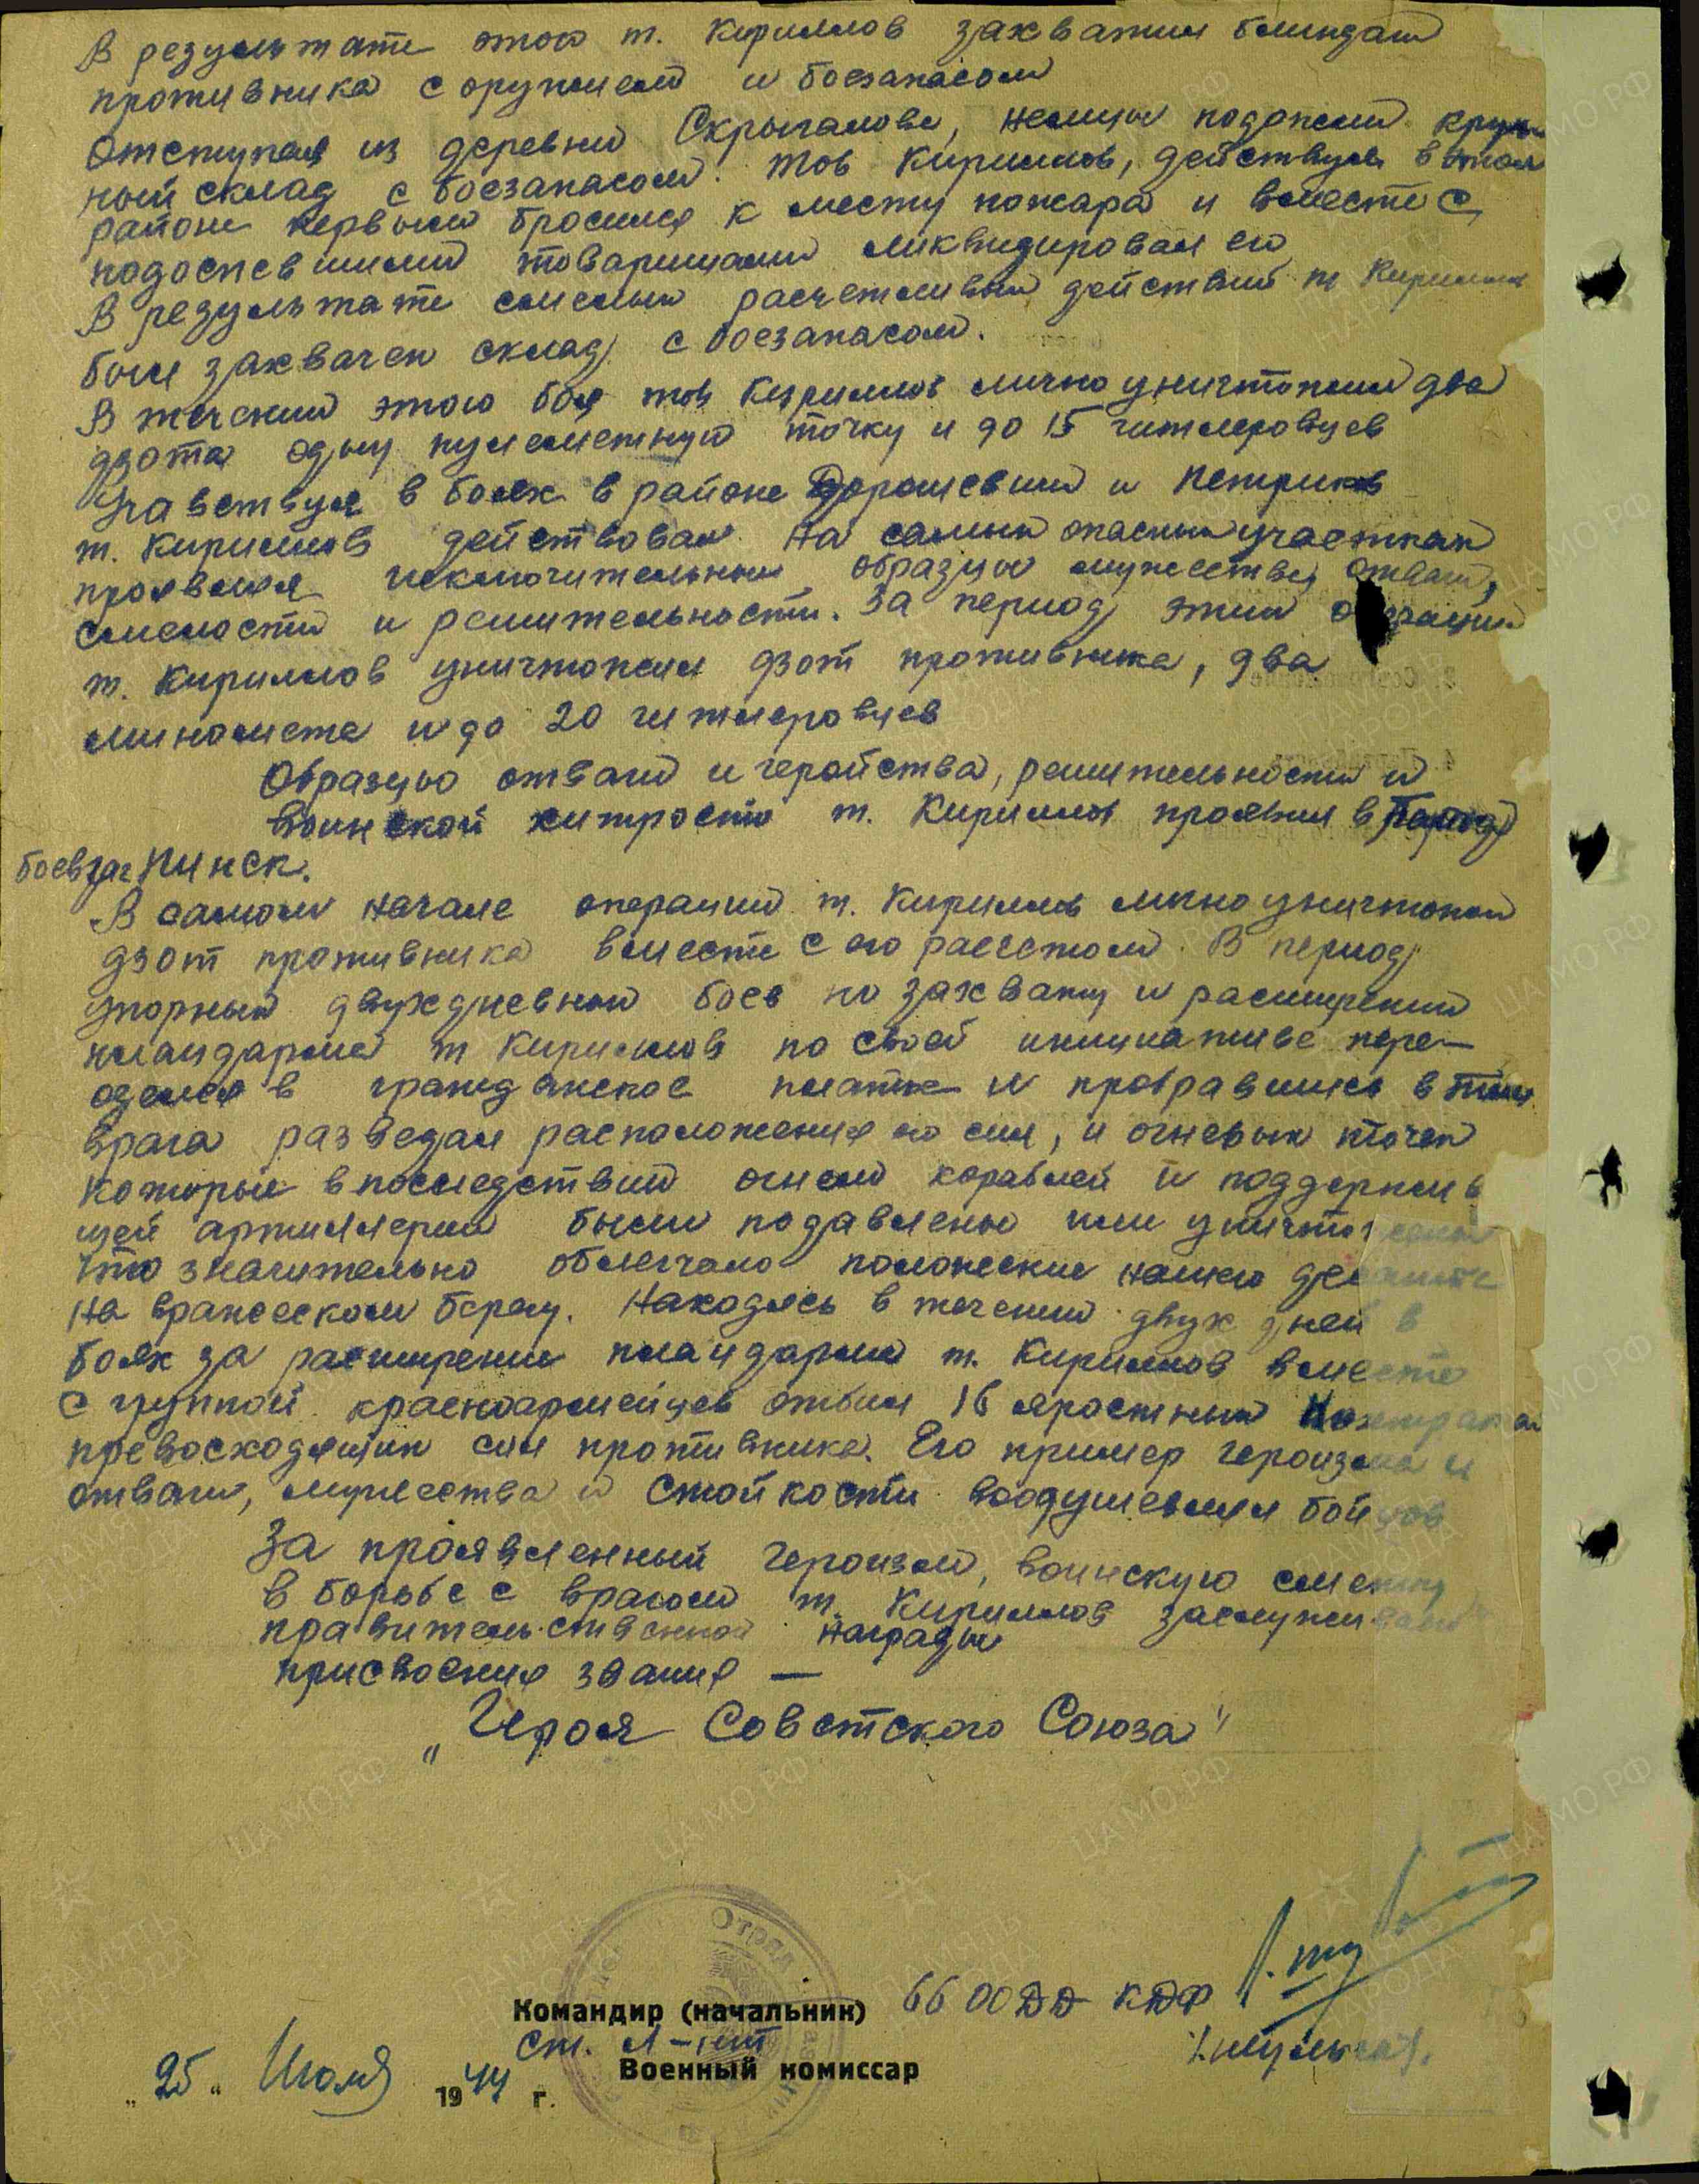 В результате этого т. Кириллов захватил блиндаж
противника с оружием и боезапасом
Отступая из деревни Скрыгалово, немцы подожгли круп
ный склад с боезапасом. тов Кириллов, действуя в этом
районе первым бросился к месту пожара и вместе с
подоспевшими товарищами ликвидировал его
В результате смелых расчетливых действий т Кириллова
был захвачен склад с боезапасом.
В течении этого боя тов Кириллов лично уничтожил два
дзота одну пулеметную точку и до 15 гитлеровцев
Учавствуя в боях в районе Дорошевичи и Петриков
т. Кириллов действовал на самых опасных участках
проявляя исключительные образцы мужества, отваги,
смелости и решительности. За период этих операций
т. Кириллов уничтожил дзот противника, два
миномета и до 20 гитлеровцев
Образцы отваги и геройства, решительности и
воинской хитрости т. Кириллов проявил в период
боев за г Пинск.
В самом начале операции т. Кириллов лично уничтожил
дзот противника вместе с его расчетом. В период
упорных двухдневных боев по захвату и расширению
плацдарма т Кириллов по своей инициативе пере-
оделся в гражданское платье и пробравшись в тыл
врага разведал расположение его сил, и огневых точек
которые впоследствии огнем кораблей и поддержив
щей артиллерии были подавлены или уничтожены
что значительно облегчало положение нашего десанта
на вражеском берегу. Находясь в течении двух дней в
боях за расширение плацдарма т. Кириллов вместе
с группой красноармейцев отбил 16 яростных контратак
превосходящих сил противника. Его пример героизма и
отваги, мужества и стойкости воодушевлял бойцов
За проявленный героизм, воинскую смекалку
в борьбе с врагом т. Кириллов заслуживает
правительственной награды
присвоения звания —
„Героя Советского Союза"
Отряд
Командир (начальник) 66 ООДД КДФ
ст. л-нт
Военный комиссар
„25" Июля 1944 г.